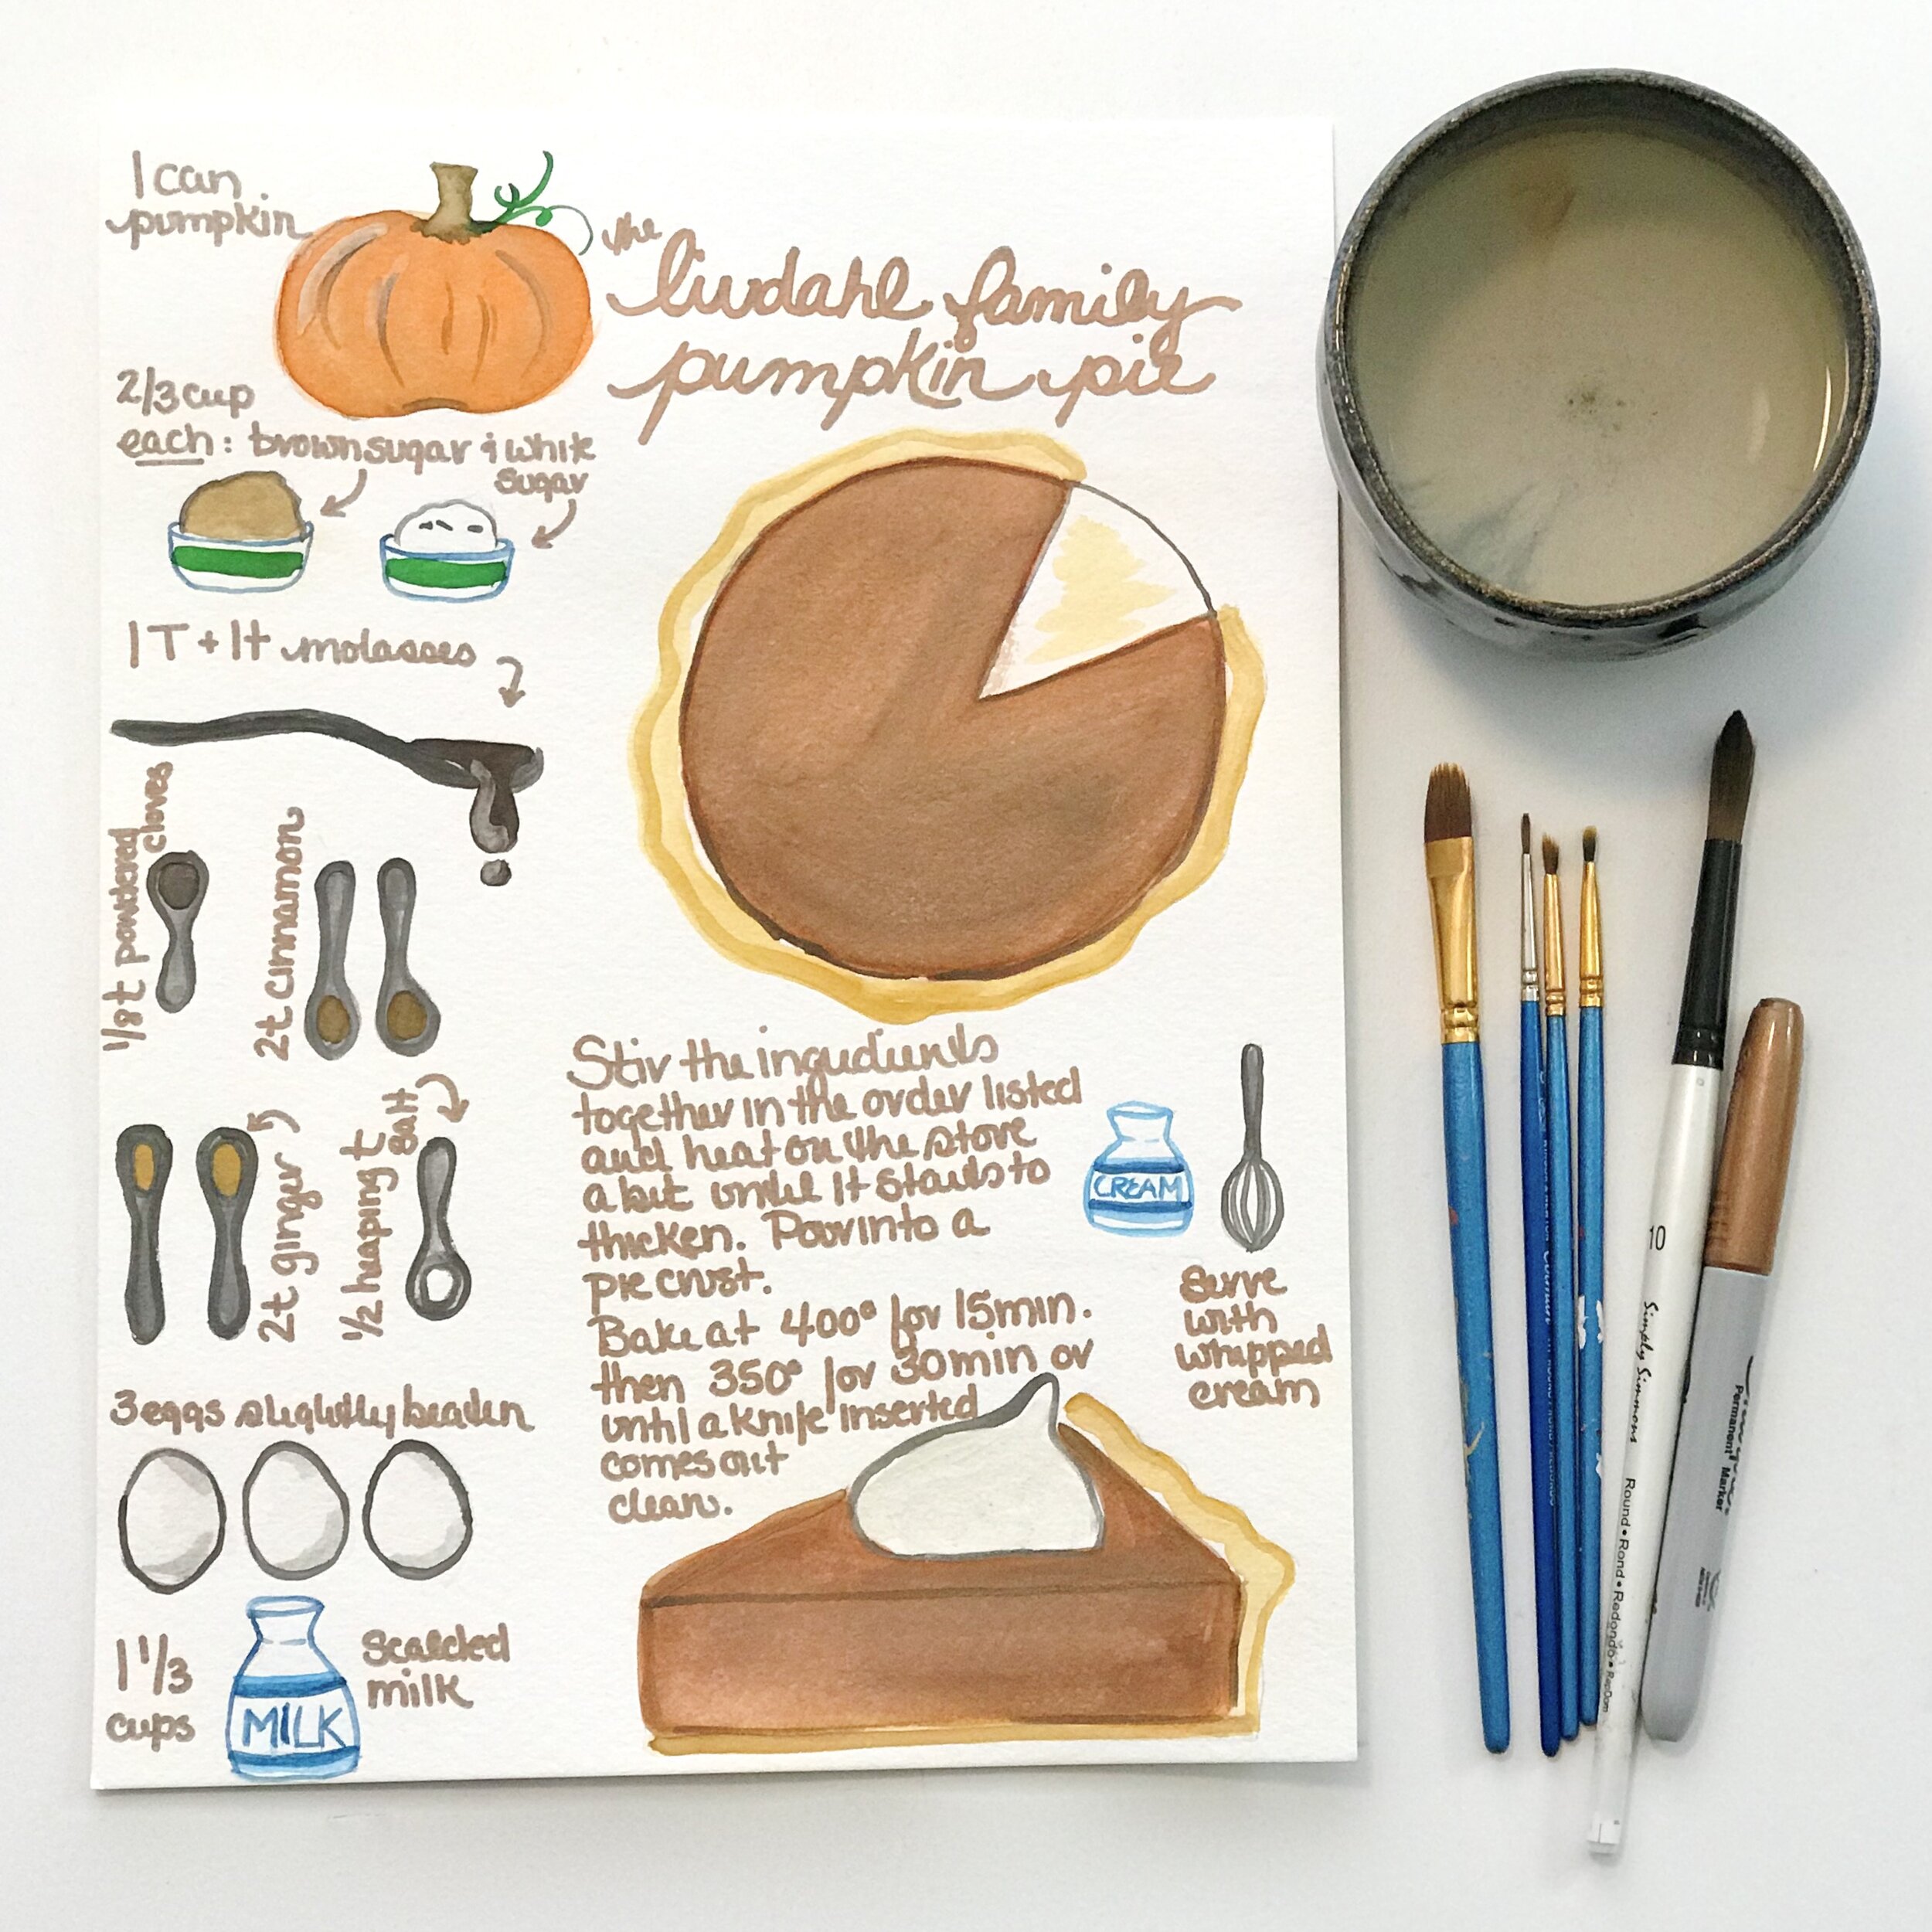 1 can
pumpkin
the
livdahl family
pumpkin pie
2/3 cup
each: brown sugar & white
sugar
1 T + 1t molasses
1/8t powdered
cloves
2t cinnamon
2t ginger
1/2 heaping t
salt
3 eggs slightly beaten
1 1/3
cups
MILK
Scalded
milk
Stir the ingredients
together in the order listed
and heat on the stove
a bit until it starts to
thicken. Pour into a
pie crust.
Bake at 400° for 15 min.
then 350° for 30 min or
until a knife inserted
comes out
clean.
CREAM
Serve
with
whipped
cream
10
Simply Simmons
Round • Rond • Redondo •
Permanent Marker